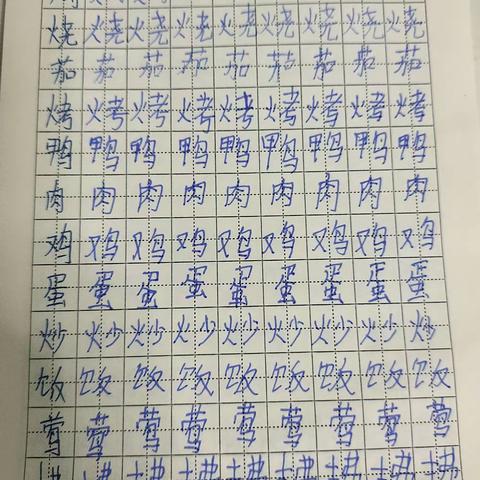 烧 烧 烧 烧 烧 烧 烧 烧 烧
茄 茄 茄 茄 茄 茄 茄 茄 茄
烤 烤 烤 烤 烤 烤 烤 烤 烤
鸭 鸭 鸭 鸭 鸭 鸭 鸭 鸭 鸭
肉 肉 肉 肉 肉 肉 肉 肉 肉
鸡 鸡 鸡 鸡 鸡 鸡 鸡 鸡 鸡
蛋 蛋 蛋 蛋 蛋 蛋 蛋 蛋 蛋
炒 炒 炒 炒 炒 炒 炒 炒 炒
饭 饭 饭 饭 饭 饭 饭 饭 饭
莺 莺 莺 莺 莺 莺 莺 莺 莺